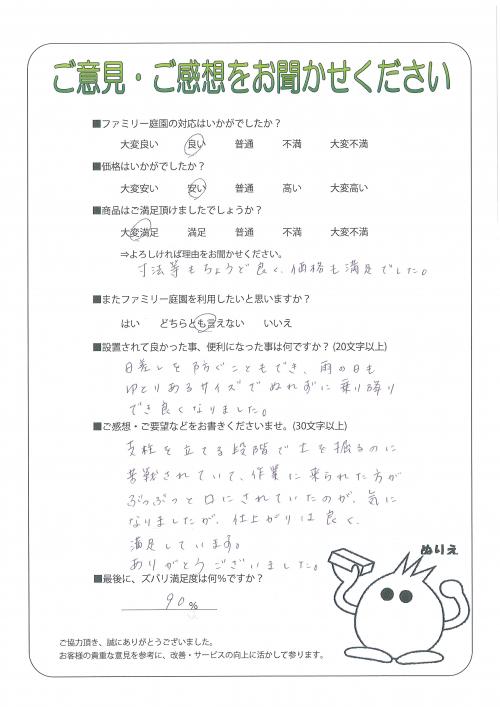 ご意見・ご感想をお聞かせください
■ファミリー庭園の対応はいかがでしたか？
大変良い 良い 普通 不満 大変不満
■価格はいかがでしたか？
大変安い 安い 普通 高い 大変高い
■商品はご満足頂けましたでしょうか？
大変満足 満足 普通 不満 大変不満
⇒よろしければ理由をお聞かせください。
寸法等もちょうど良く、価格も満足でした。
■またファミリー庭園を利用したいと思いますか？
はい どちらとも言えない いいえ
■設置されて良かった事、便利になった事は何ですか？(20文字以上)
日差しを防ぐこともでき、雨の日も
ゆとりあるサイズでぬれずに乗り降り
でき良くなりました。
■ご感想・ご要望などをお書きくださいませ。(30文字以上)
支柱を立てる段階で土を掘るのに
苦戦されていて、作業に来られた方が
ぶつぶつと口にされていたのが、気に
なりましたが、仕上がりは良く、
満足しています。
ありがとうございました。
ぬりえ
■最後に、ズバリ満足度は何％ですか？
90％
ご協力頂き、誠にありがとうございました。
お客様の貴重な意見を参考に、改善・サービスの向上に活かして参ります。